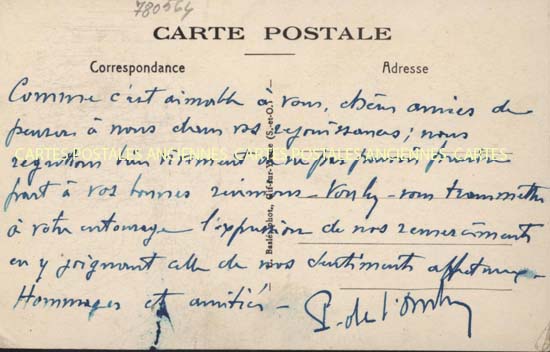 780564
CARTE POSTALE
Correspondance
Adresse
Comme c'est aimable à vous, chères amies de
penser à nous dans vos réjouissances; nous
regrettons bien vivement de ne pas pouvoir prendre
part à vos bonnes réunions - Voulez-vous transmettre
à votre entourage l'expression de nos remerciements
en y joignant celle de nos sentiments affectueux -
Hommages et amitiés -
CARTES POSTALES ANCIENNES CARTES POSTALES ANCIENNES CARTES
Gif-sur-Yvette (S.-et-O.)